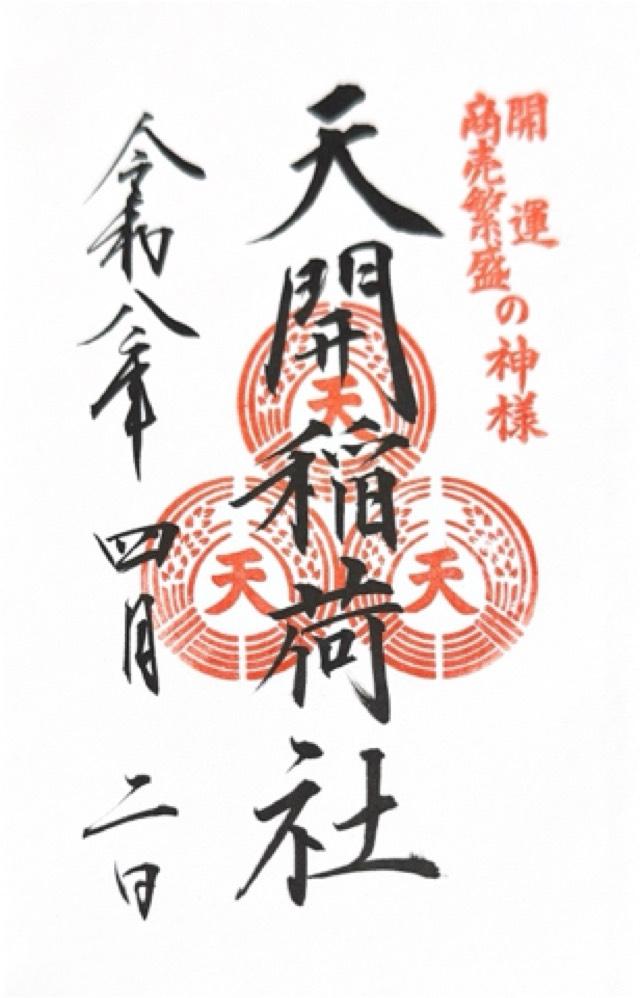 開運
商売繁盛
の神様
天開稲荷社
天
天
天
令和八年四月二日